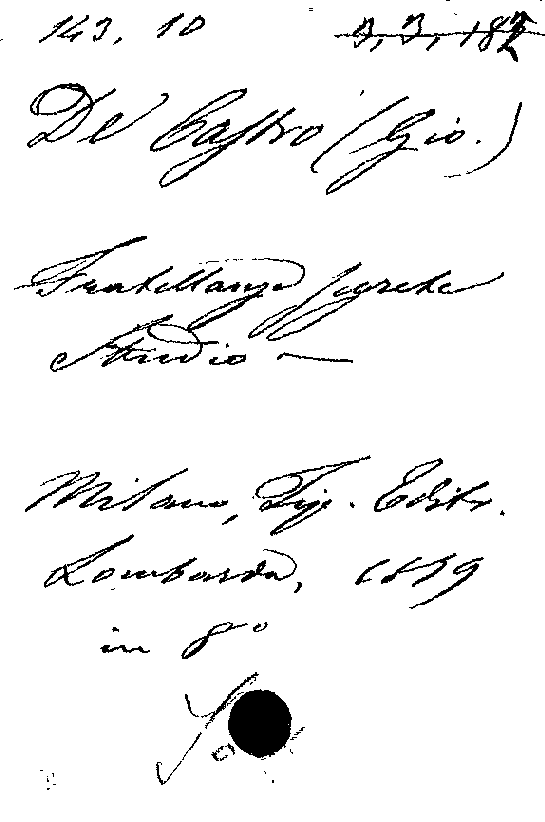 143. 10
De Castro (Gio.)
Fratellanze segrete
Studio —
Milano, Tip. Editr.
Lombarda, 1879
in 8°